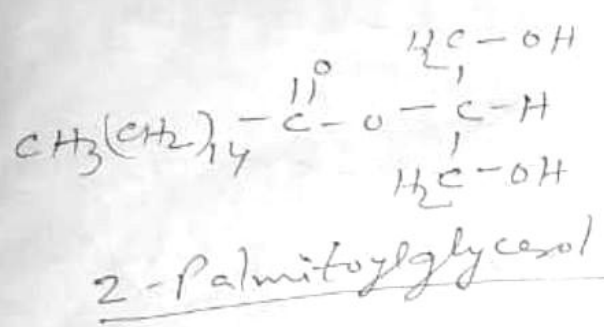 H₂C - OH
O
CH₃(CH₂)₁₄ - C - O - C - H
H₂C - OH
2 - Palmitoylglycerol